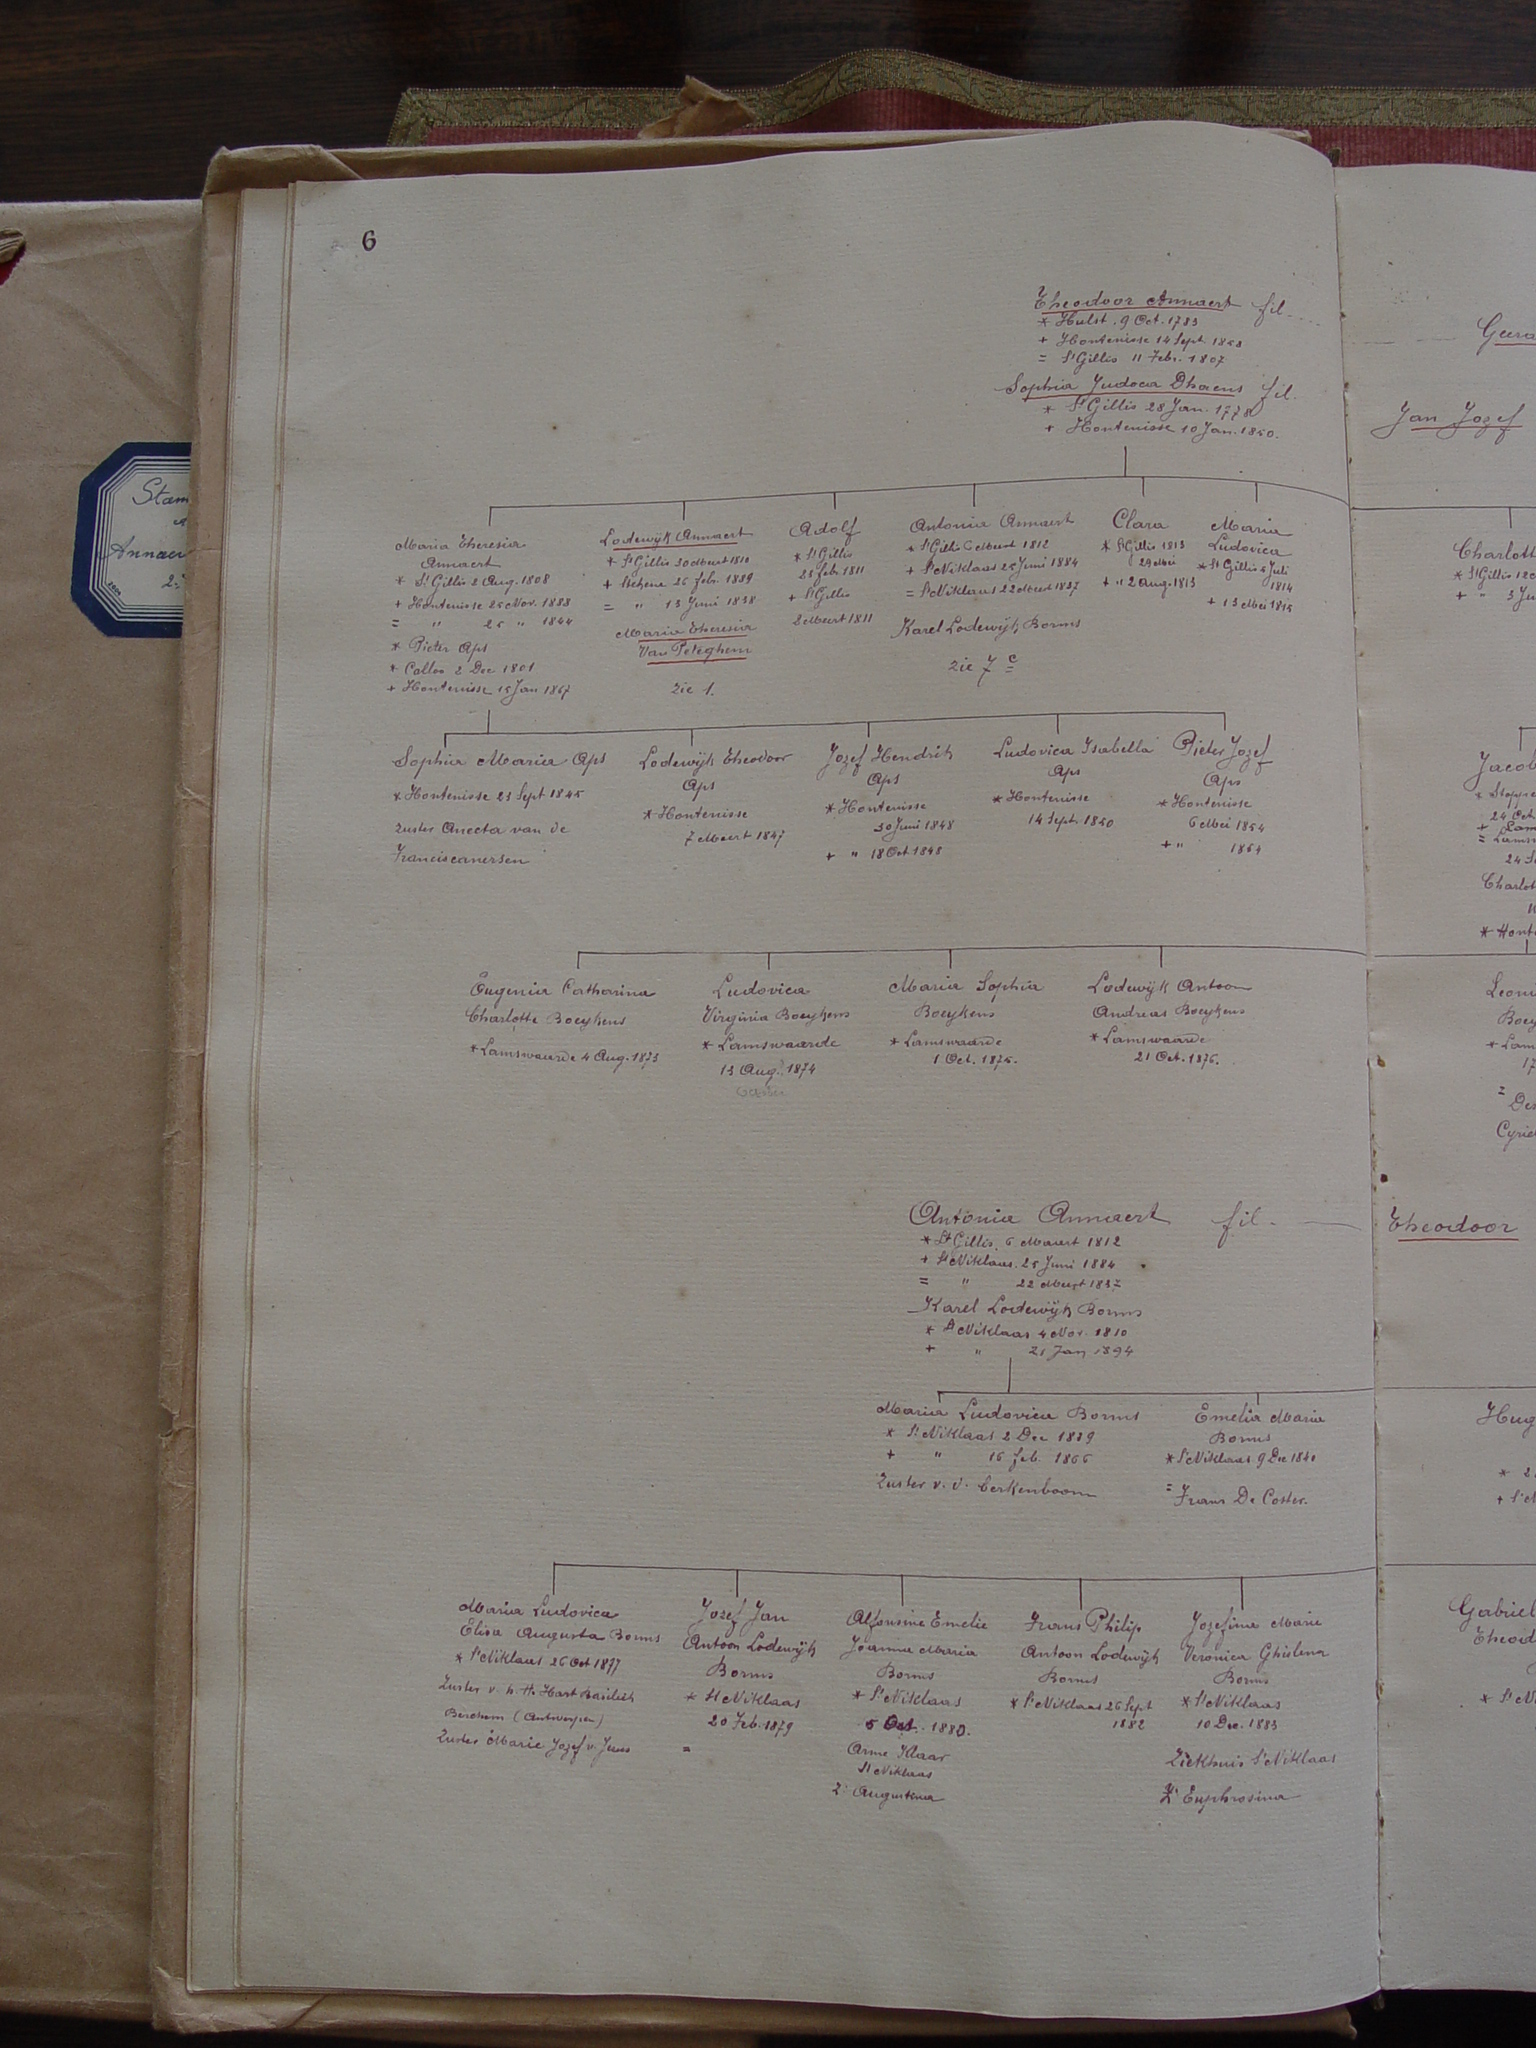 6
Theodoor Annaert fil.
* Hulst. 9 Oct. 1783
+ Hontenisse 14 Sept. 1858
= St Gillis 11 Febr. 1807
Sophia Judoca Dhaens fil.
* St Gillis 28 Jan. 1778
+ Hontenisse 10 Jan. 1850.
Maria Theresia
Annaert
* St Gillis 2 Aug. 1808
+ Hontenisse 25 Nov. 1888
= " 25 " 1844
* Pieter Aps
* Calloo 2 Dec 1801
+ Hontenisse 15 Jan 1867
Lodewijk Annaert
* St Gillis 30 Maart 1810
+ Stekene 26 febr. 1889
= " 13 Juni 1838
Maria Theresia
Van Peteghem
zie 1.
Adolf
* St Gillis
25 feb 1811
+ St Gillis
8 Maart 1811
Antonia Annaert
* St Gillis 6 Maart 1812
+ St Niklaas 25 Juni 1884
= St Niklaas 22 Maart 1837
Karel Lodewijk Borms
zie 7 c
Clara
* St Gillis 1813
29 Mei
+ " 2 Aug. 1813
Maria
Ludovica
* St Gillis 5 Juli
1814
+ 13 Mei 1815
Sophia Maria Aps
* Hontenisse 23 Sept 1845
Zuster Anecta van de
Franciscanersen
Lodewijk Theodoor
Aps
* Hontenisse
7 Maert 1847
Jozef Hendrik
Aps
* Hontenisse
30 Juni 1848
+ " 18 Oct 1848
Ludovica Isabella
Aps
* Hontenisse
14 Sept. 1850
Pieter Jozef
Aps
* Hontenisse
6 Mei 1854
+ " 1864
Eugenia Catharina
Charlotta Boeykens
* Lamswaarde 4 Aug. 1873
Ludovica
Virginia Boeykens
* Lamswaarde
13 Aug. 1874
Maria Sophia
Boeykens
* Lamswaarde
1 Oct. 1875.
Lodewijk Antoon
Andreas Boeykens
* Lamswaarde
21 Oct. 1876.
Antonia Annaert fil.
* St Gillis. 6 Maart 1812
+ St Niklaas. 25 Juni 1884
= " 22 Maart 1837
Karel Lodewijk Borms
* St Niklaas 4 Nov. 1810
+ " 21 Jan 1894
Maria Ludovica Borms
* St Niklaas 2 Dec 1839
+ " 16 feb. 1866
Zuster v. d. Berkenboom
Emelia Maria
Borms
* St Niklaas 9 Dec 1840
= Frans De Coster.
Maria Ludovica
Elisa Augusta Borms
* St Niklaas 26 Oct 1877
Zuster v. h. H. Hart Basiliek
Berchem (Antwerpen)
Zuster Marie Jozef v. Jesus
Jozef Jan
Antoon Lodewijk
Borms
* St Niklaas
20 Feb. 1879
=
Alfonsine Emelie
Joanna Maria
Borms
* St Niklaas
5 Oct. 1880.
Arme Klaar
St Niklaas
Zr Augustina
Frans Philip
Antoon Lodewijk
Borms
* St Niklaas 26 Sept
1882
Jozefina Marie
Veronica Ghislena
Borms
* St Niklaas
10 Dec. 1883
Ziekhuis St Niklaas
Zr Euphrosina
Jan Jozef
Theodoor
Stam
Annaer